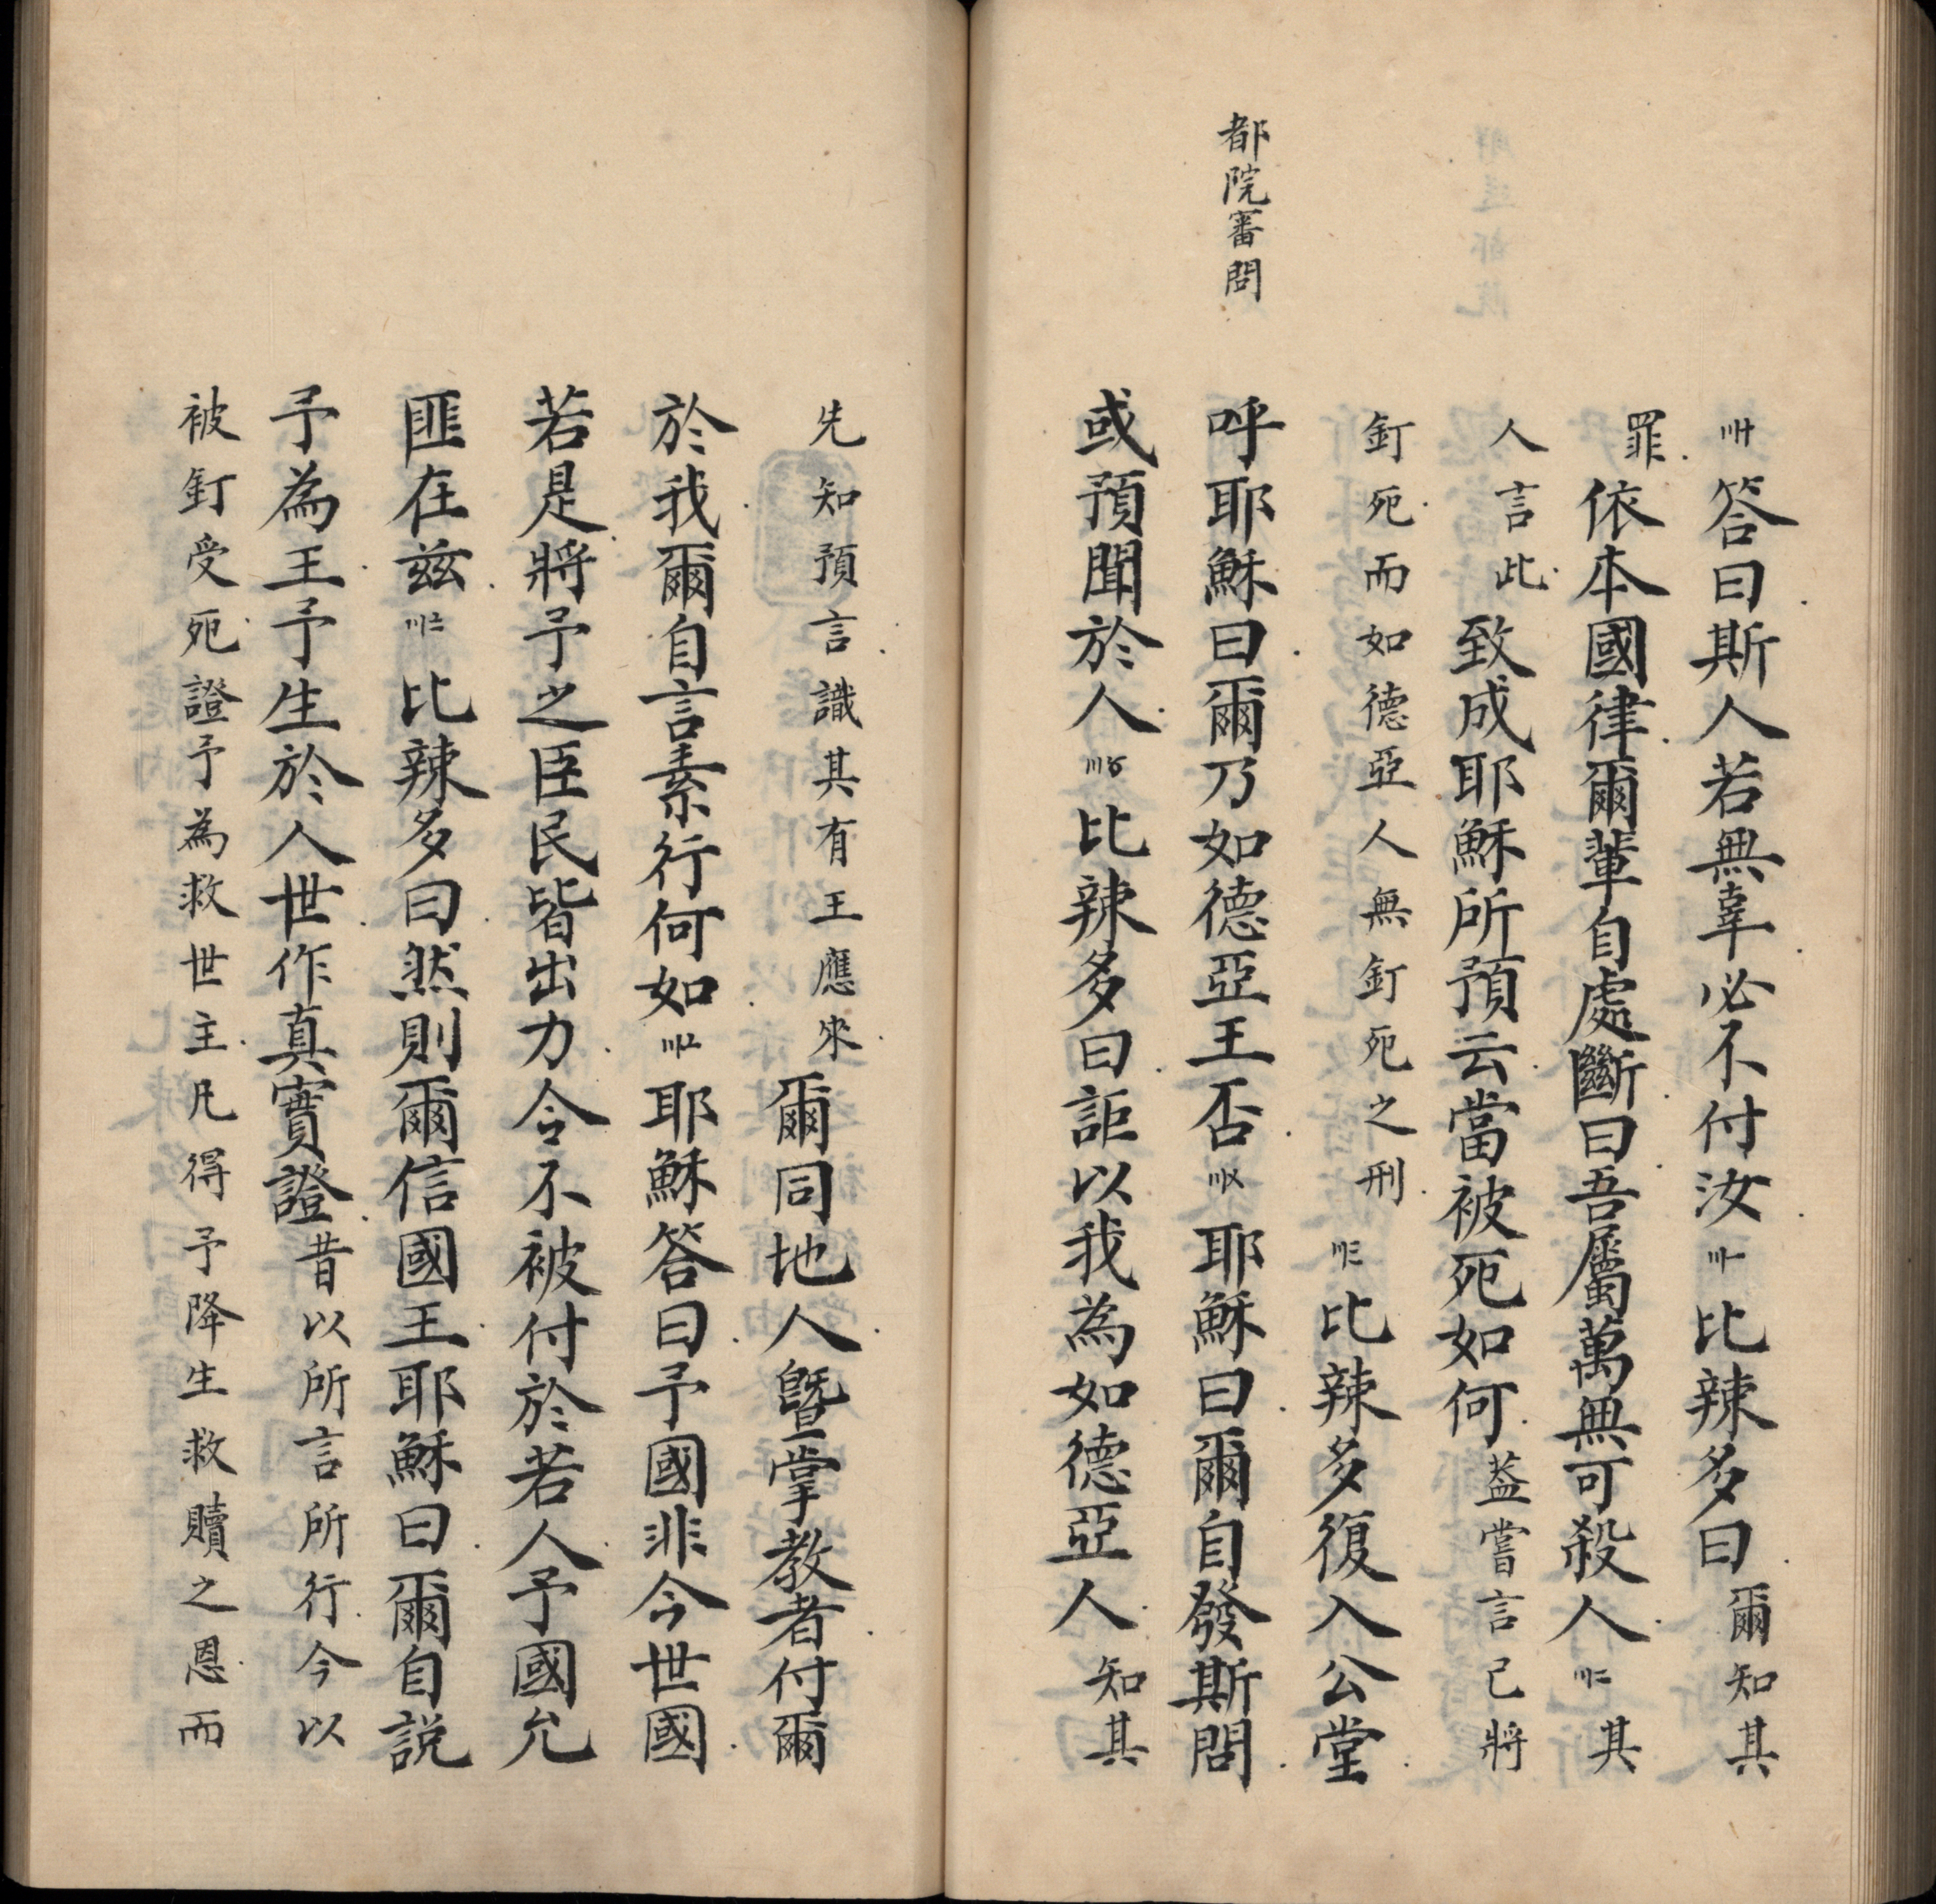 〣十答曰斯人若無辜必不付汝〣一比辣多曰爾知其
罪依本國律爾輩自處斷曰吾屬萬無可殺人〣二其
人言此致成耶穌所預云當被死如何葢嘗言己將
釘死而如德亞人無釘死之刑〣三比辣多復入公堂
都院審問
呼耶穌曰爾乃如德亞王否〣〤耶穌曰爾自發斯問
或預聞於人〣〥比辣多曰詎以我為如德亞人知其
先知預言識其有王應來爾同地人曁掌教者付爾
於我爾自言素行何如〣〦耶穌答曰予國非今世國
若是將予之臣民皆出力令不被付於若人予國允
匪在兹〣〧比辣多曰然則爾信國王耶穌曰爾自説
予為王予生於人世作真實證昔以所言所行今以
被釘受死證予為救世主凡得予降生救贖之恩而